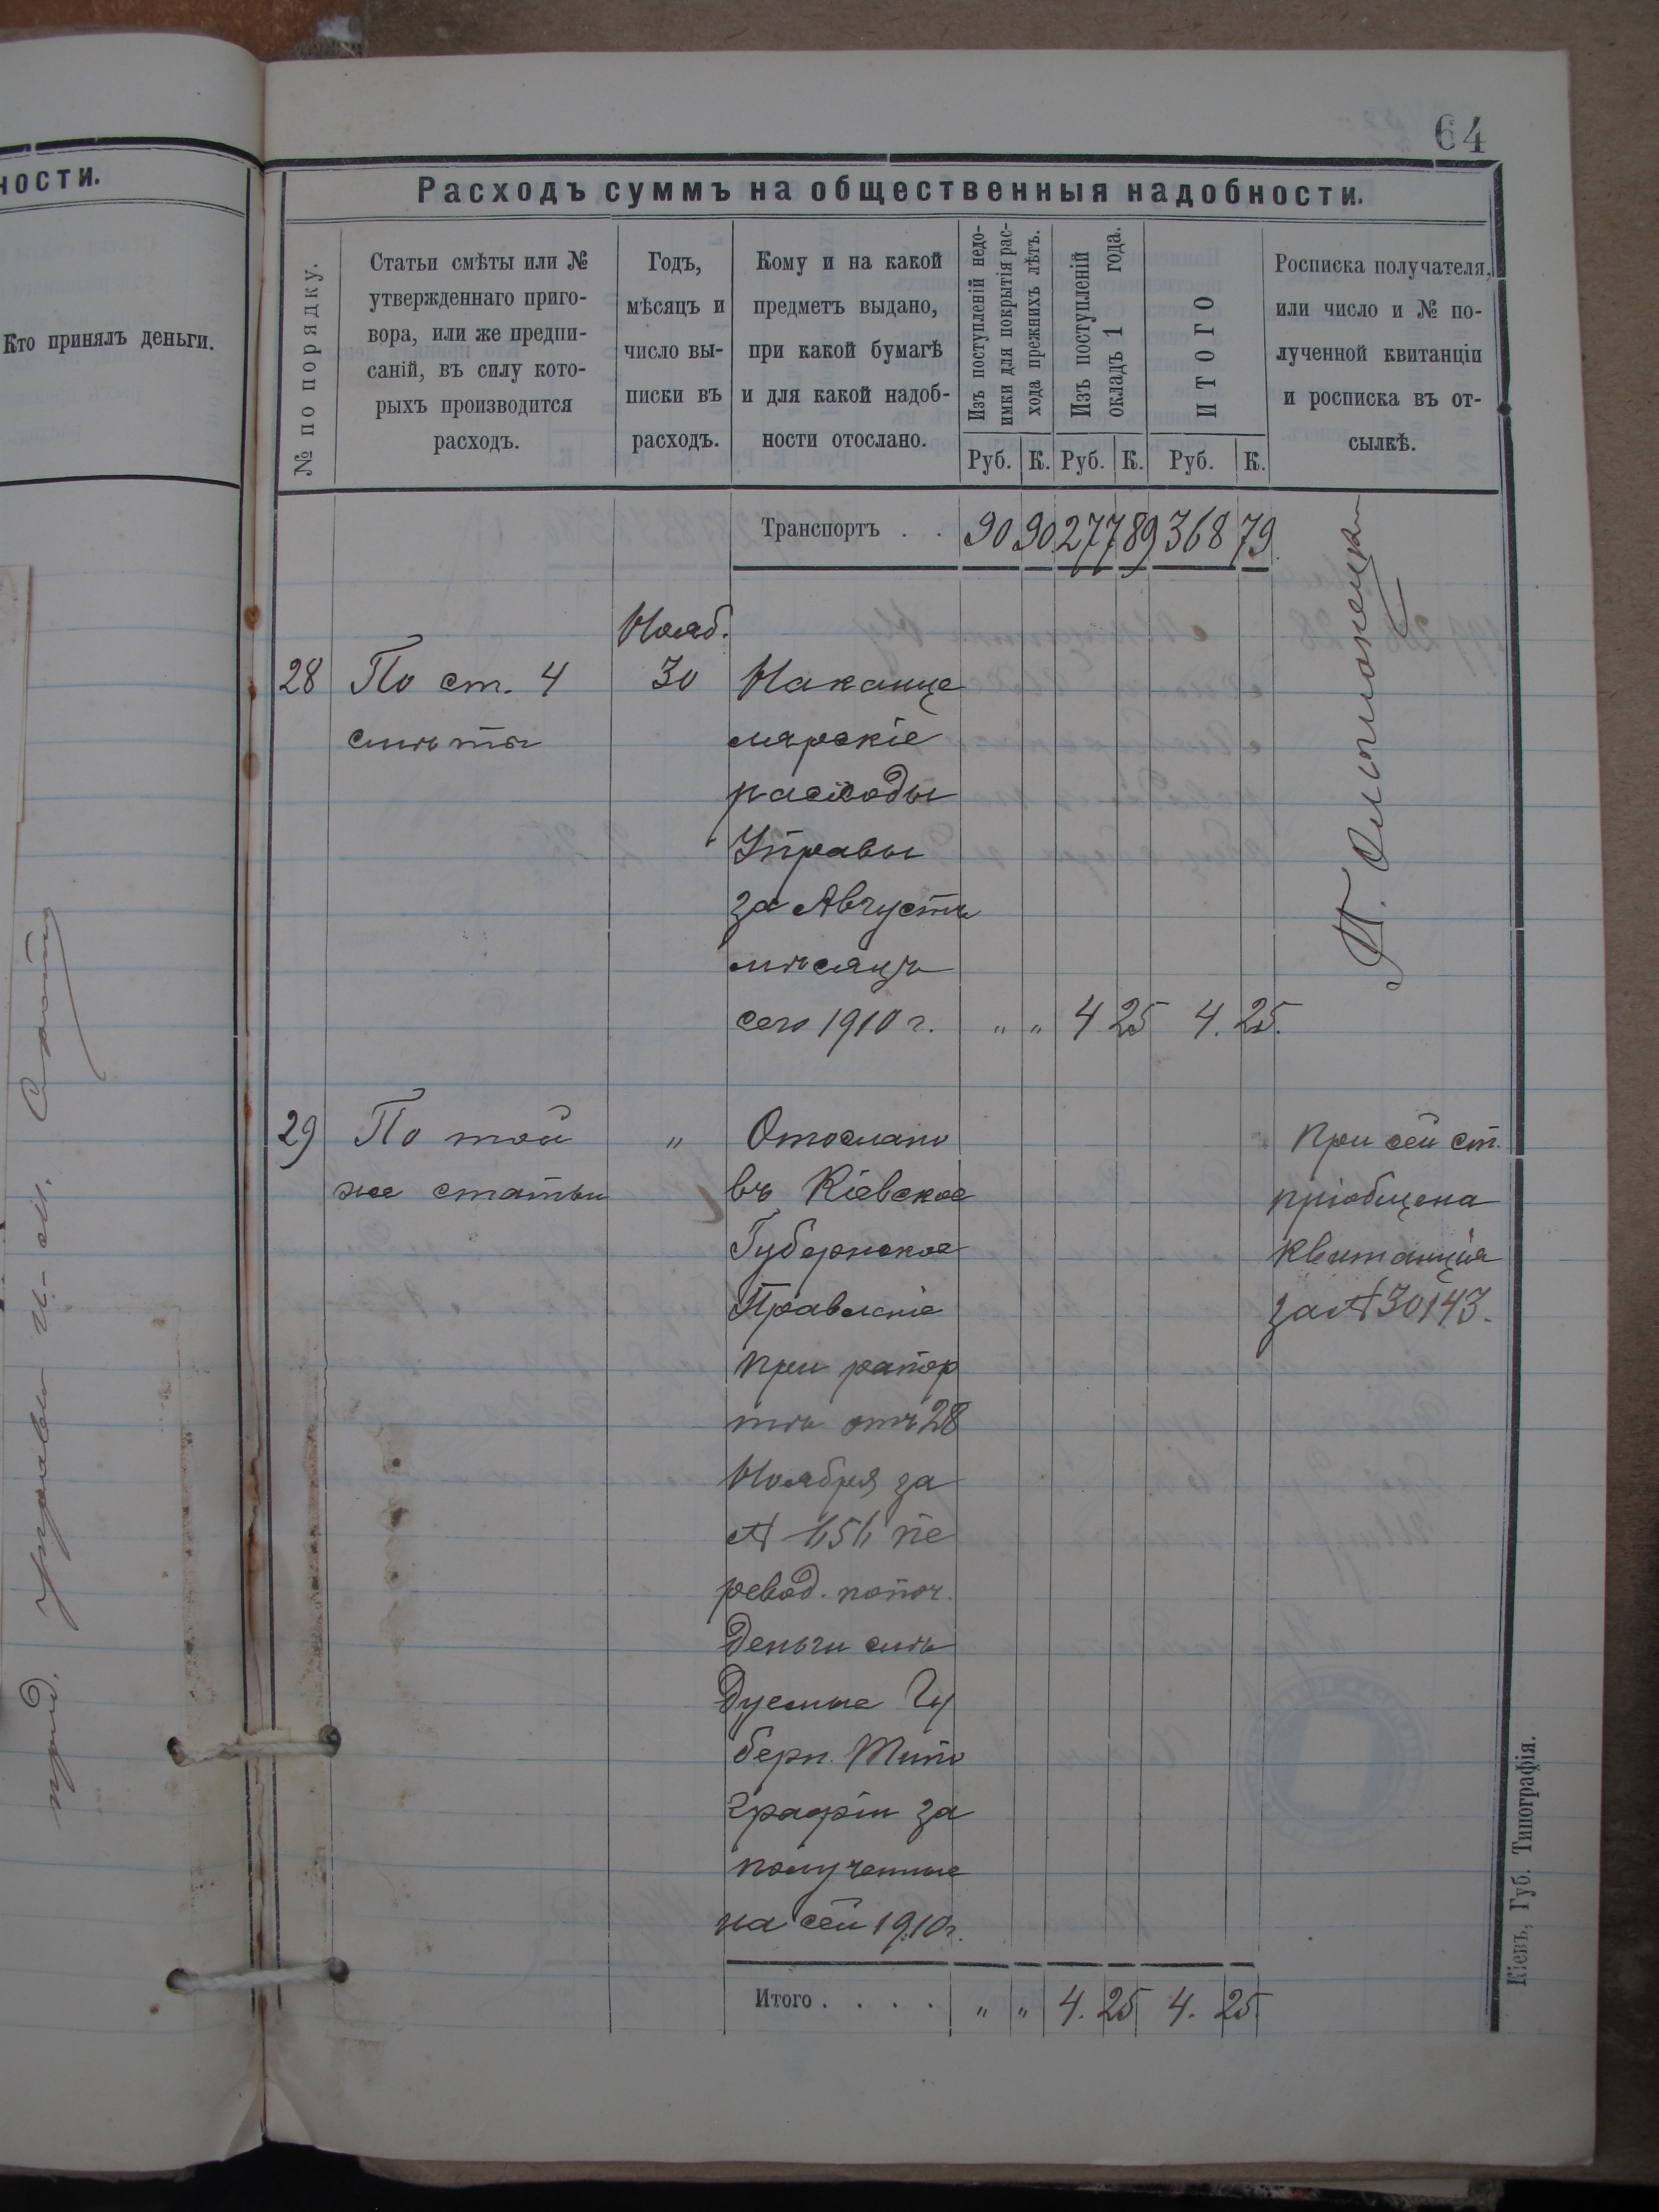 ности.
Кто принялъ деньги.
64
Расходъ суммъ на общественныя надобности.
№ по порядку.
Статьи смѣты или №
утвержденнаго приго-
вора, или же предпи-
саній, въ силу кото-
рыхъ производится
расходъ.
Годъ,
мѣсяцъ и
число вы-
писки въ
расходъ.
Кому и на какой
предметъ выдано,
при какой бумагѣ
и для какой надоб-
ности отослано.
Изъ поступленій недо-
имки для покрытія рас-
хода прежнихъ лѣтъ.
Изъ поступленій
окладъ 1 года.
ИТОГО
Руб. К. Руб. К. Руб. К.
Росписка получателя,
или число и № по-
лученной квитанціи
и росписка въ от-
сылкѣ.
Транспортъ . . 90 90 277 89 368 79.
Нояб.
28 По ст. 4 30 На канце
смѣты лярскіе
расходы
Управы
за Августъ
мѣсяцъ
сего 1910 г. " " 4 25 4. 25.
29 По той " Отослано при сей ст.
же статьи въ Кіевское пріобщена
Губернское квитанція
Правленіе за № 30143.
при рапор
тѣ отъ 28
Ноября за
№ пе
ревод. почт.
деньги слѣ
дуемые Гу
берн. Типо
графіи за
полученные
на сей 1910 г.
Итого . . . . " " 4. 25 4. 25.
Кіевъ, Губ. Типографія.